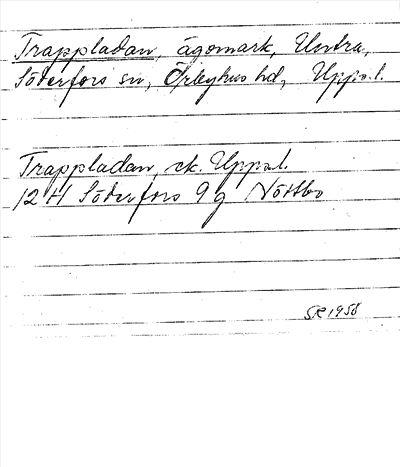 Trappladan, ägomark, Untra,
Söderfors sn, Örbyhus hd, Upps.l.
Trappladan, ek. Upps.l.
12 H Söderfors 9 g Nöttbo
SR 1958